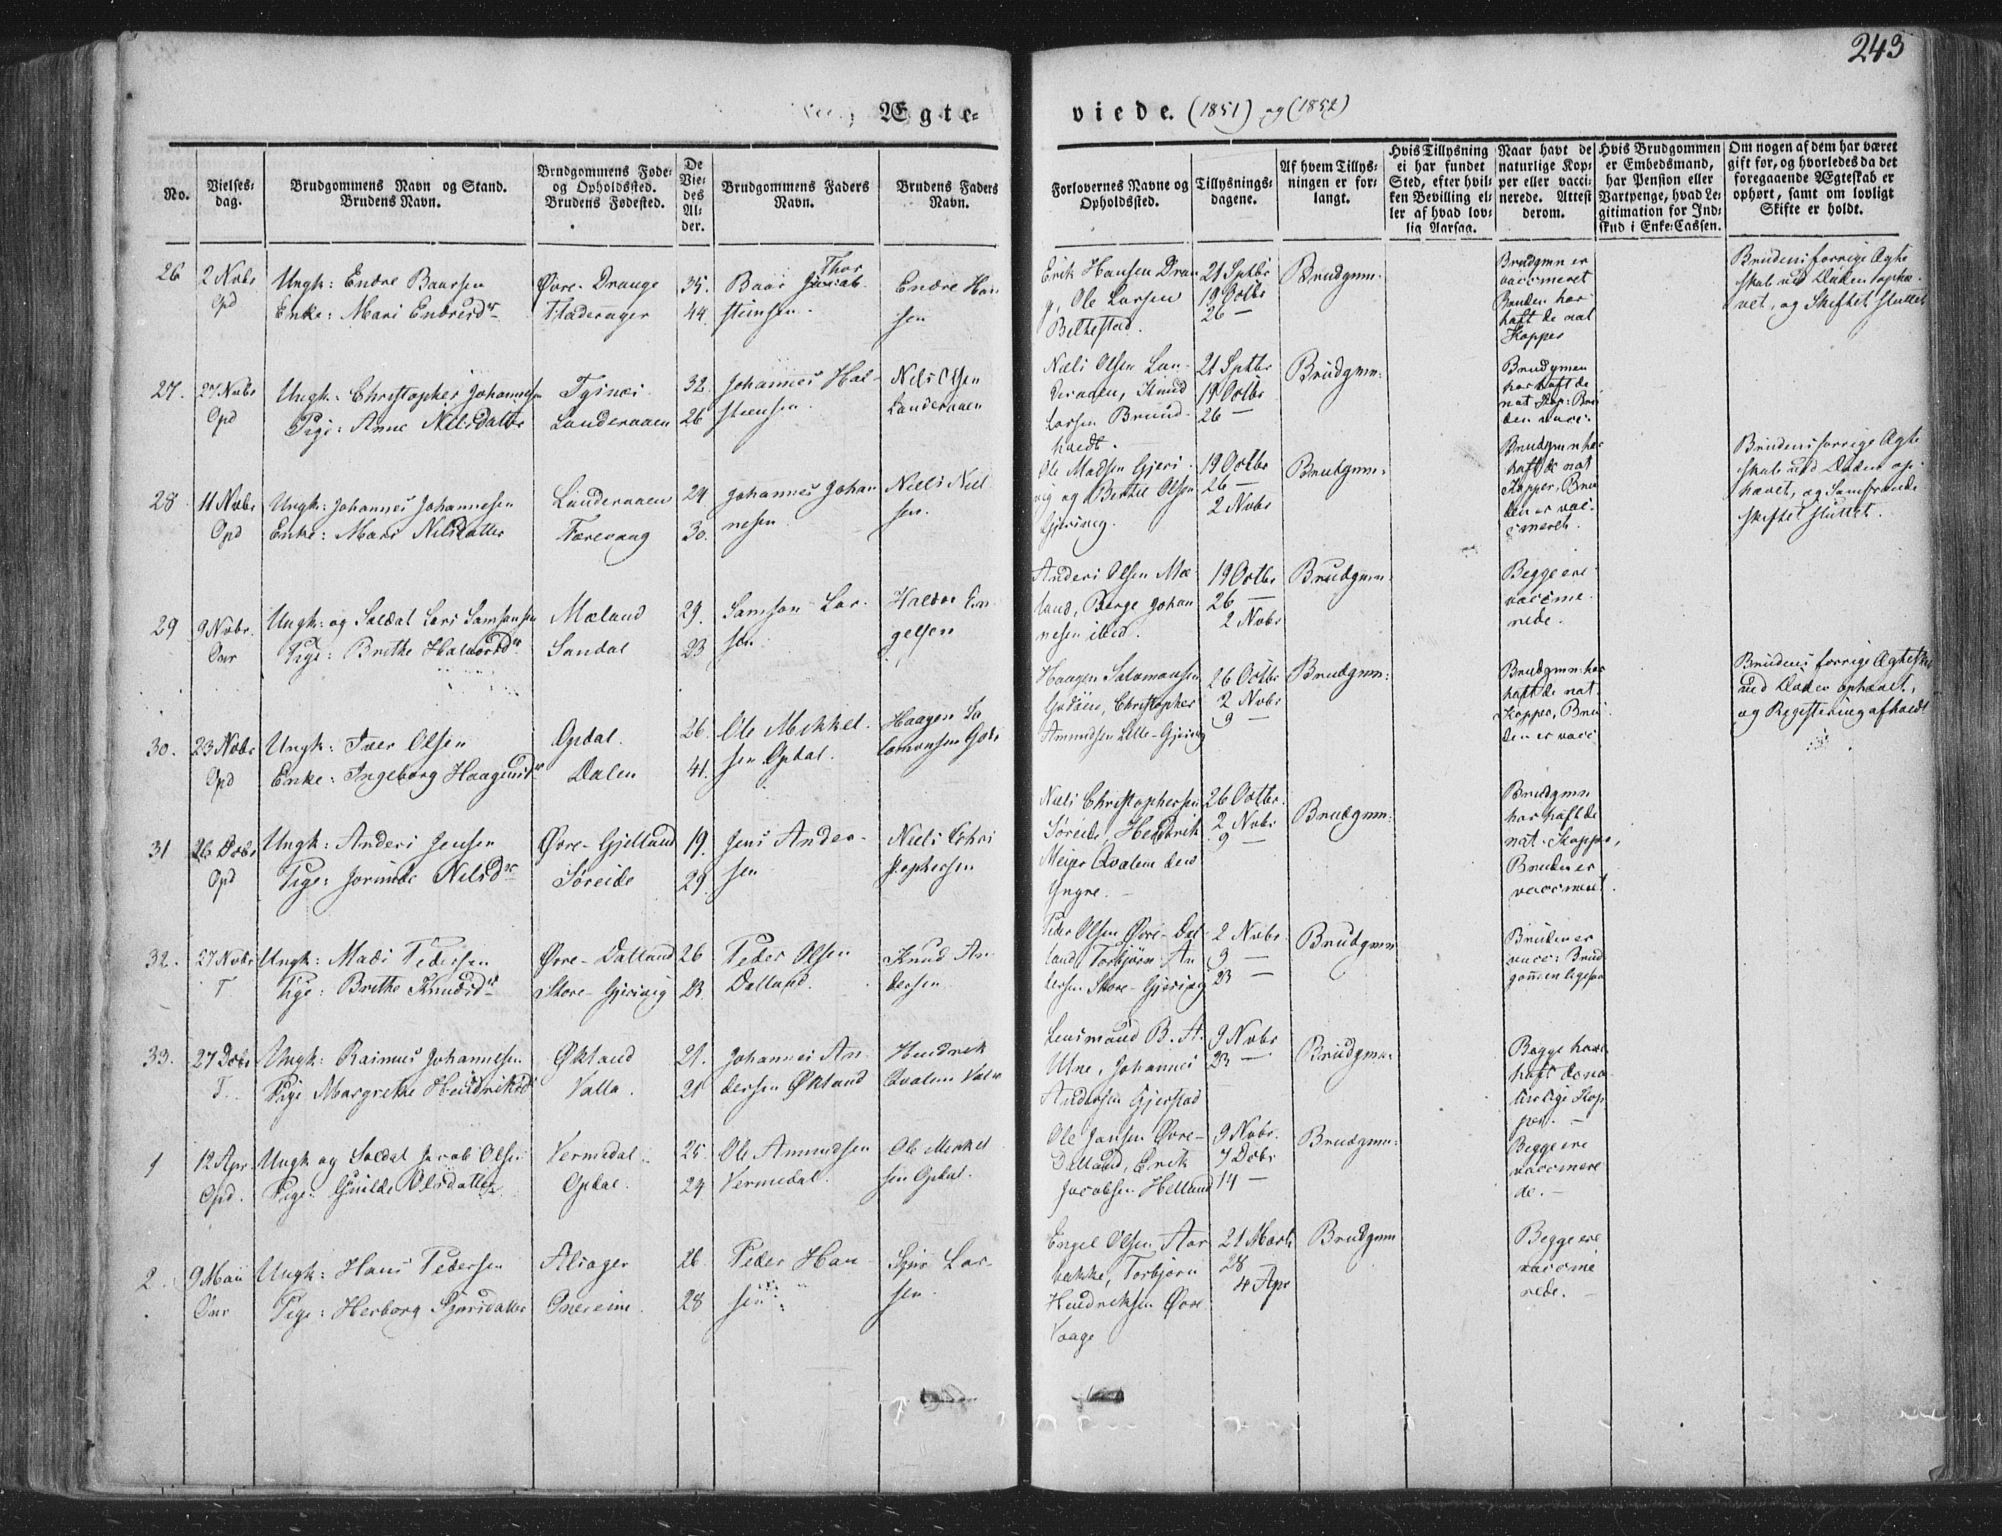 243
Ægte-
viede. (1851) og (1852)
No.
Vielses-
dag.
Brudgommens Navn og Stand.
Brudens Navn.
Brudgommens Føde-
og Opholdssted.
Brudens Fødested.
De
Vie-
des
Al-
der.
Brudgommens Faders
Navn.
Brudens Faders
Navn.
Forlovernes Navne og
Opholdssted.
Tillysnings-
dagene.
Af hvem Tillys-
ningen er for-
langt.
Hvis Tillysning
ei har fundet
Sted, efter hvil-
ken Bevilling el-
ler af hvad lov-
lig Aarsag.
Naar havt de
naturlige Kop-
per eller vacci-
nerede. Attest
derom.
Hvis Brudgommen
er Embedsmand,
har Pension eller
Vartpenge, hvad Le-
gitimation for Ind-
skud i Enke-Cassen.
Om nogen af dem har været
gift før, og hvorledes da det
foregaaende Ægteskab er
ophørt, samt om lovligt
Skifte er holdt.
26
2 Novbr
Opd
Ungk: Endre Baarsen
Enke: Mari Endresdr
Øvre-Drange
Fladerager
35.
44.
Baar Thor
steinsen.
Endre Han
sen
Erik Hansen Dran
g, Ole Larsen
Beltestad.
21 Sptbr
19 Octbr
26 —
Brudgmn:
Brudgmn er
vaccineret
Bruden har
haft de nat
Kopper
Brudens forrige Ægte
skab ved Døden ophæ-
vet, og Skiftet sluttet
27.
27 Novbr
Opd
Ungk: Christopher Johannesen
Pige: Anne Nilsdatter
Tysnes
Landeraaen
32.
26
Johannes Hal-
steensen.
Niels Olsen
Landeraaen
Niels Olsen Lan-
deraaen, Knud
Larsen Brund-
hvedt.
21 Sptbr
19 Octbr
26 —
Brudgmn:
Brudgmen
har haft de
nat Kop: Bru
den vacc:
28
11 Novbr
Opd
Ungk: Johannes Johannesen
Enke: Mari Nilsdatter
Landeraaen
Færevaag
24
30.
Johannes Johan
nesen.
Niels Niel-
sen.
Ole Madsen Gjeri-
vig og Bertel Olsen
Gjerivig.
19 Octbr
26 —
2 Novbr
Brudgmn:
Brudgmn har
haft de nat
Kopper, Bru
den er vac-
cineret.
Brudens forrige Ægte
skab ved Døden op-
hævet, og Samfrænde
skiftet sluttet.
29
9 Novbr.
Onr
Ungk: og Soldat Lars Samsonsen
Pige: Brithe Halvorsdr
Mæland
Sandal
29.
23
Samson Lar-
sen
Haldor En-
gelsen
Anders Olsen Mæ-
land, Børge Johan
nesen ibid.
19 Octbr
26 —
2 Novbr
Brudgmn:
Begge ere
vaccine-
rede.
30.
23 Novbr
Opd
Ungk: Iver Olsen
Enke: Ingeborg Haagensdr
Opdal.
Dalen
26.
41.
Ole Mikkel-
sen Opdal.
Haagen Sa
lomonsen Godø
Haagen Salomonsen
Godøen, Christopher
Amundsen Lille-Gjerivig
26 Octbr
2 Novbr
9 —
Brudgmn:
Brudgmn: har
haft de nat.
Kopper, Bru-
den er vacc
Brudens forrige Ægteskab
ved Døden ophævet,
og Registering afholdt
31
26 Decbr
Opd
Ungk: Anders Jensen
Pige: Jorinde Nilsdr
Øvre-Gjelland
Søreide
19.
29.
Jens Ander-
sen
Niels Chri
stophersen
Niels Christophersen
Søreide, Hendrik
Meyer Qvalem den
Yngre. —
26 Octbr.
2 Novbr
9 —
Brudgmn:
Brudgmn
har haft de
nat. Kopper,
Bruden er
vaccineret.
32.
27 Novbr
T
Ungk: Mads Pedersen
Pige: Brithe Knudsdr
Øvre-Dalland
Store-Gjerivig
26
23.
Peder Olsen
Dalland.
Knud An-
dersen
Peder Olsen Øvre-Dal-
land, Torbjørn An
dersen Store-Gjerivig
2 Novbr.
9 —
23 —
Brudgmn
Bruden er
vacc: Brud
gommen ligesaa
33.
27 Decbr
T.
Ungk: Rasmus Johannesen
Pige Margrethe Hendriksdr
Øktand
Valla.
21.
21
Johannes An-
dersen Øktand
Hendrik
Qvalem Valla
Lensmand B. A.
Utne, Johannes
Andersen Gjerstad
9 Novbr
23 —
Brudgmn:
Begge have
haft de na-
turlige Kop
per. —
1
12 Apr
Opd.
Ungk og Soldat Jacob Olsen
Pige: Gunilde Olsdatter
Vermedal.
Opdal.
25
24
Ole Amundsen
Vermedal.
Ole Mikkel
sen Opdal.
Ole Jansen Øvre-
Dalland, Erik
Jacobsen Helland
9 Novbr.
7 Decbr
14 —
Brudgmn:
Begge ere
vaccinere
de. —
2.
9 Mai
Onr
Ungk: Hans Pedersen
Pige: Herborg Sjursdatter
Alsager
Onereim.
26.
28
Peder Han-
sen
Sjur Lar-
sen.
Engel Olsen Aar
bakke, Torbjørn
Hendriksen Øvre-
Vaage
21 Marts
28 —
4 Apr
Brudgmn
Begge ere
vaccine
rede. —